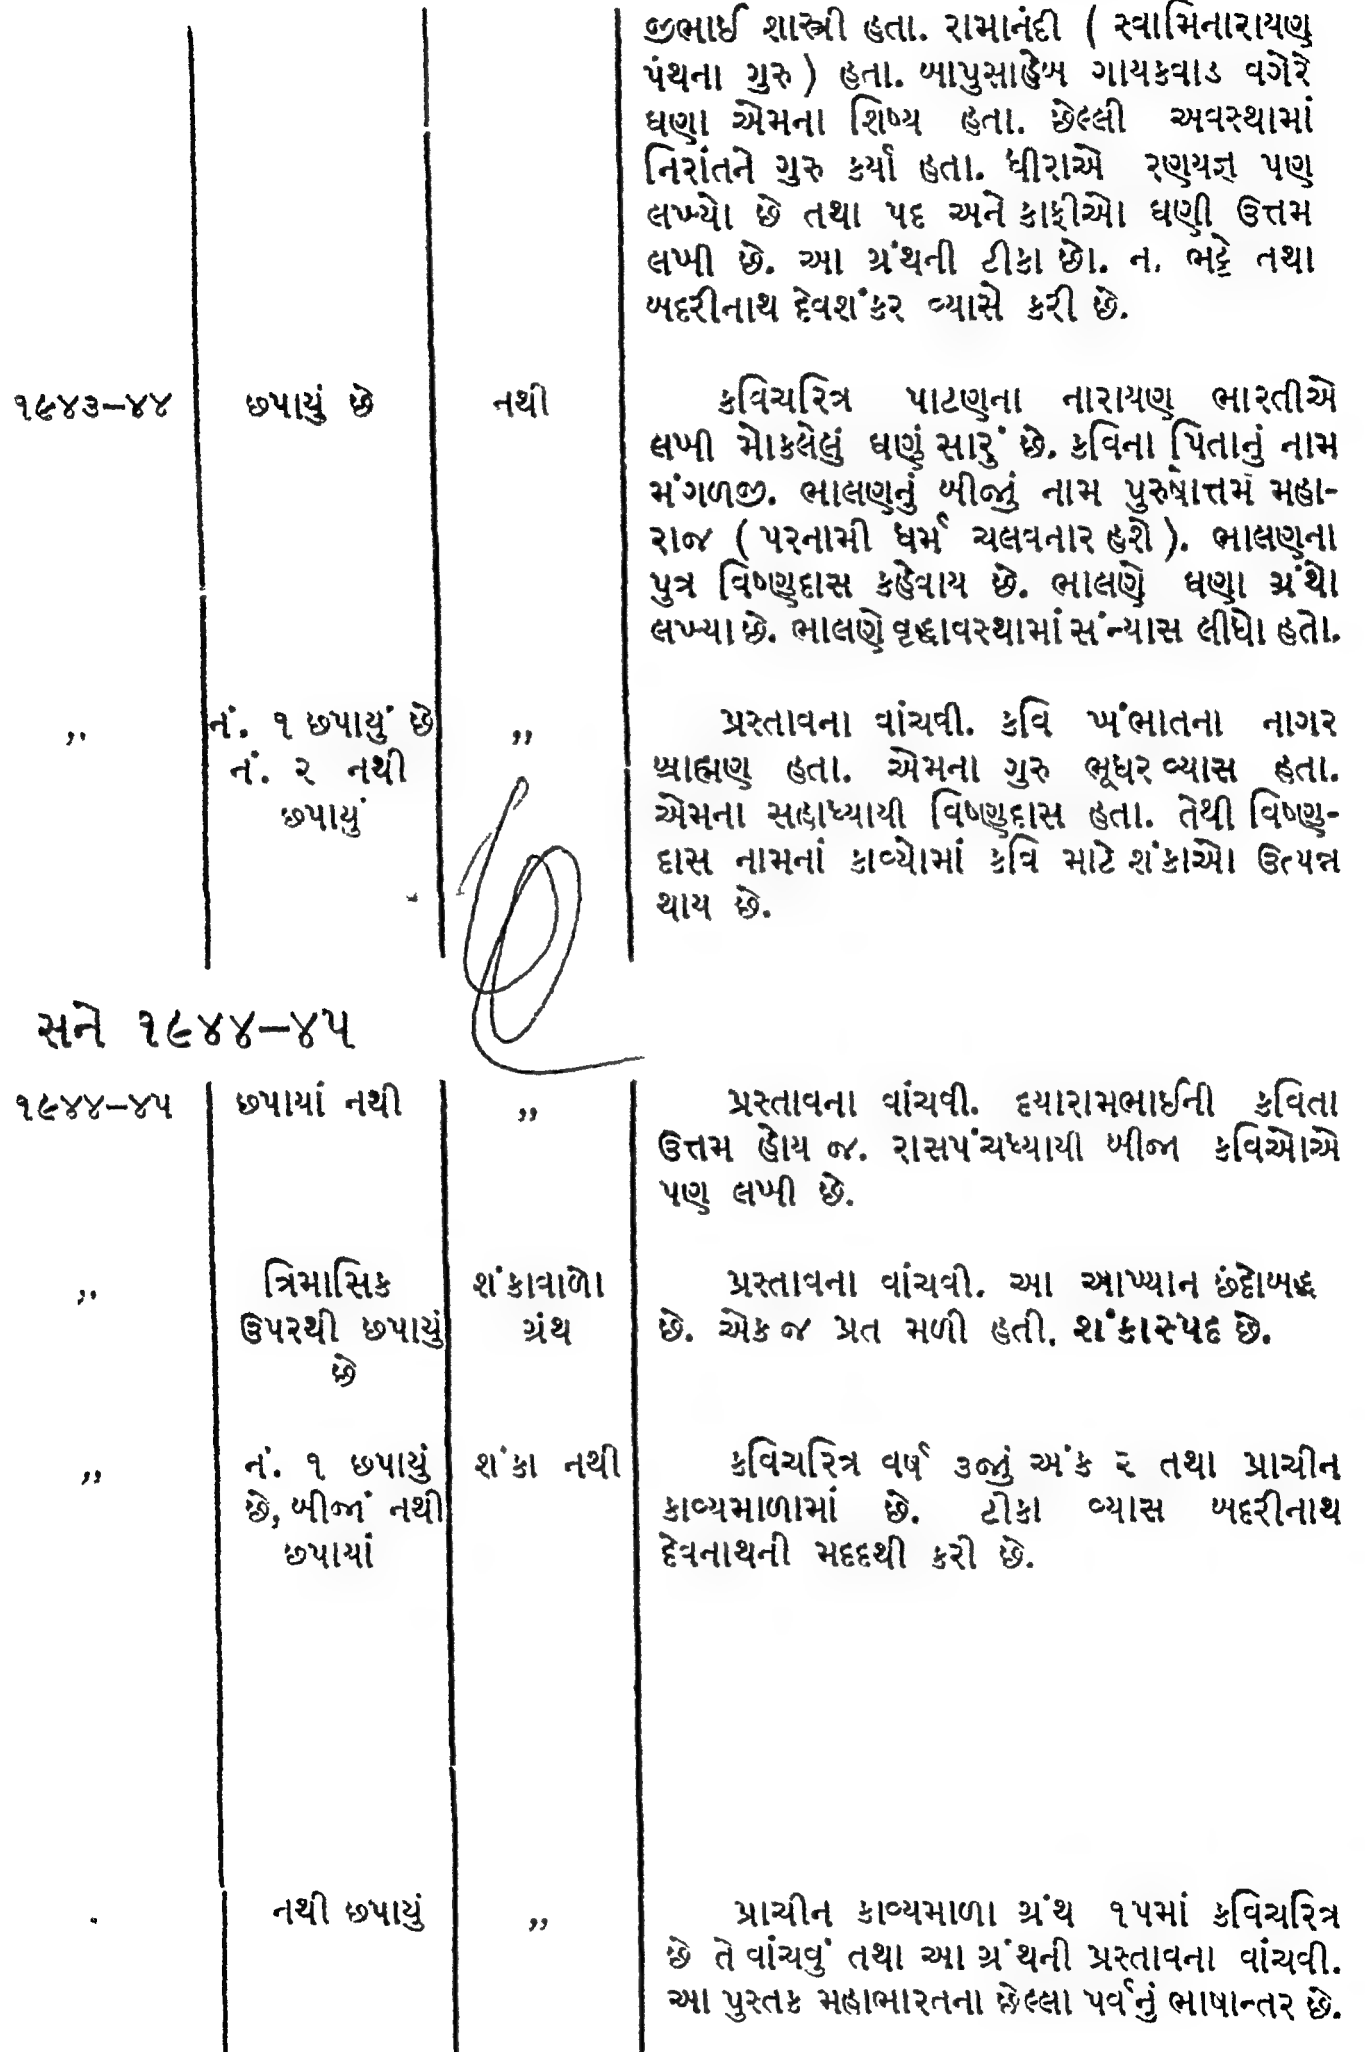 જીભાઈ શાસ્ત્રી હતા. રામાનંદી ( સ્વામિનારાયણ
પંથના ગુરુ ) હતા. બાપુસાહેબ ગાયકવાડ વગેરે
ઘણા એમના શિષ્ય હતા. છેલ્લી અવસ્થામાં
નિરાંતને ગુરુ કર્યા હતા. ધીરાએ રણયજ્ઞ પણ
લખ્યો છે તથા પદ અને કાફીઓ ઘણી ઉત્તમ
લખી છે. આ ગ્રંથની ટીકા છો. ન. ભટ્ટે તથા
બદરીનાથ દેવશંકર વ્યાસે કરી છે.
૧૯૪૩–૪૪ છપાયું છે નથી કવિચરિત્ર પાટણના નારાયણ ભારતીએ
લખી મોકલેલું ઘણું સારું છે. કવિના પિતાનું નામ
મંગળજી. ભાલણનું બીજું નામ પુરુષોત્તમ મહા-
રાજ ( પરનામી ધર્મ ચલવનાર હશે ). ભાલણના
પુત્ર વિષ્ણુદાસ કહેવાય છે. ભાલણે ઘણા ગ્રંથો
લખ્યા છે. ભાલણે વૃદ્ધાવસ્થામાં સંન્યાસ લીધો હતો.
,, નં. ૧ છપાયું છે ,, પ્રસ્તાવના વાંચવી. કવિ ખંભાતના નાગર
નં. ૨ નથી બ્રાહ્મણ હતા. એમના ગુરુ ભૂધર વ્યાસ હતા.
છપાયું એમના સહાધ્યાયી વિષ્ણુદાસ હતા. તેથી વિષ્ણુ-
દાસ નામનાં કાવ્યોમાં કવિ માટે શંકાઓ ઉત્પન્ન
થાય છે.
સને ૧૯૪૪–૪૫
૧૯૪૪–૪૫ છપાયાં નથી ,, પ્રસ્તાવના વાંચવી. દયારામભાઈની કવિતા
ઉત્તમ હોય જ. રાસપંચધ્યાયી બીજા કવિઓએ
પણ લખી છે.
,, ત્રિમાસિક શંકાવાળો પ્રસ્તાવના વાંચવી. આ આખ્યાન છંદોબદ્ધ
ઉપરથી છપાયું ગ્રંથ છે. એક જ પ્રત મળી હતી. શંકાસ્પદ છે.
છે
,, નં. ૧ છપાયું શંકા નથી કવિચરિત્ર વર્ષ ૩જું અંક ૨ તથા પ્રાચીન
છે, બીજાં નથી કાવ્યમાળામાં છે. ટીકા વ્યાસ બદરીનાથ
છપાયાં દેવનાથની મદદથી કરી છે.
નથી છપાયું ,, પ્રાચીન કાવ્યમાળા ગ્રંથ ૧૫માં કવિચરિત્ર
છે તે વાંચવું તથા આ ગ્રંથની પ્રસ્તાવના વાંચવી.
આ પુસ્તક મહાભારતના છેલ્લા પર્વનું ભાષાન્તર છે.